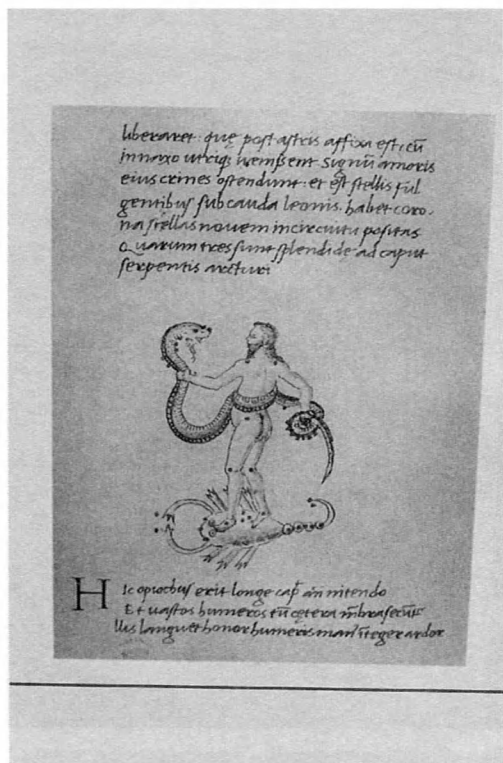 liberaret · quę post astris affixa est, cū
in naxo utriq; Signū amoris
eius crines ostendunt · et est stellis ful
gentibus sub cauda leonis · habet coro ·
na stellas nouem in circuitu positas
Quarum tres sunt splendide ad caput
serpentis arcturi
Hic opiochus erit longe cap̄ añ nitendo
Et uastos humeros tū cętera
languet honor humeris man̄ īteger ardor